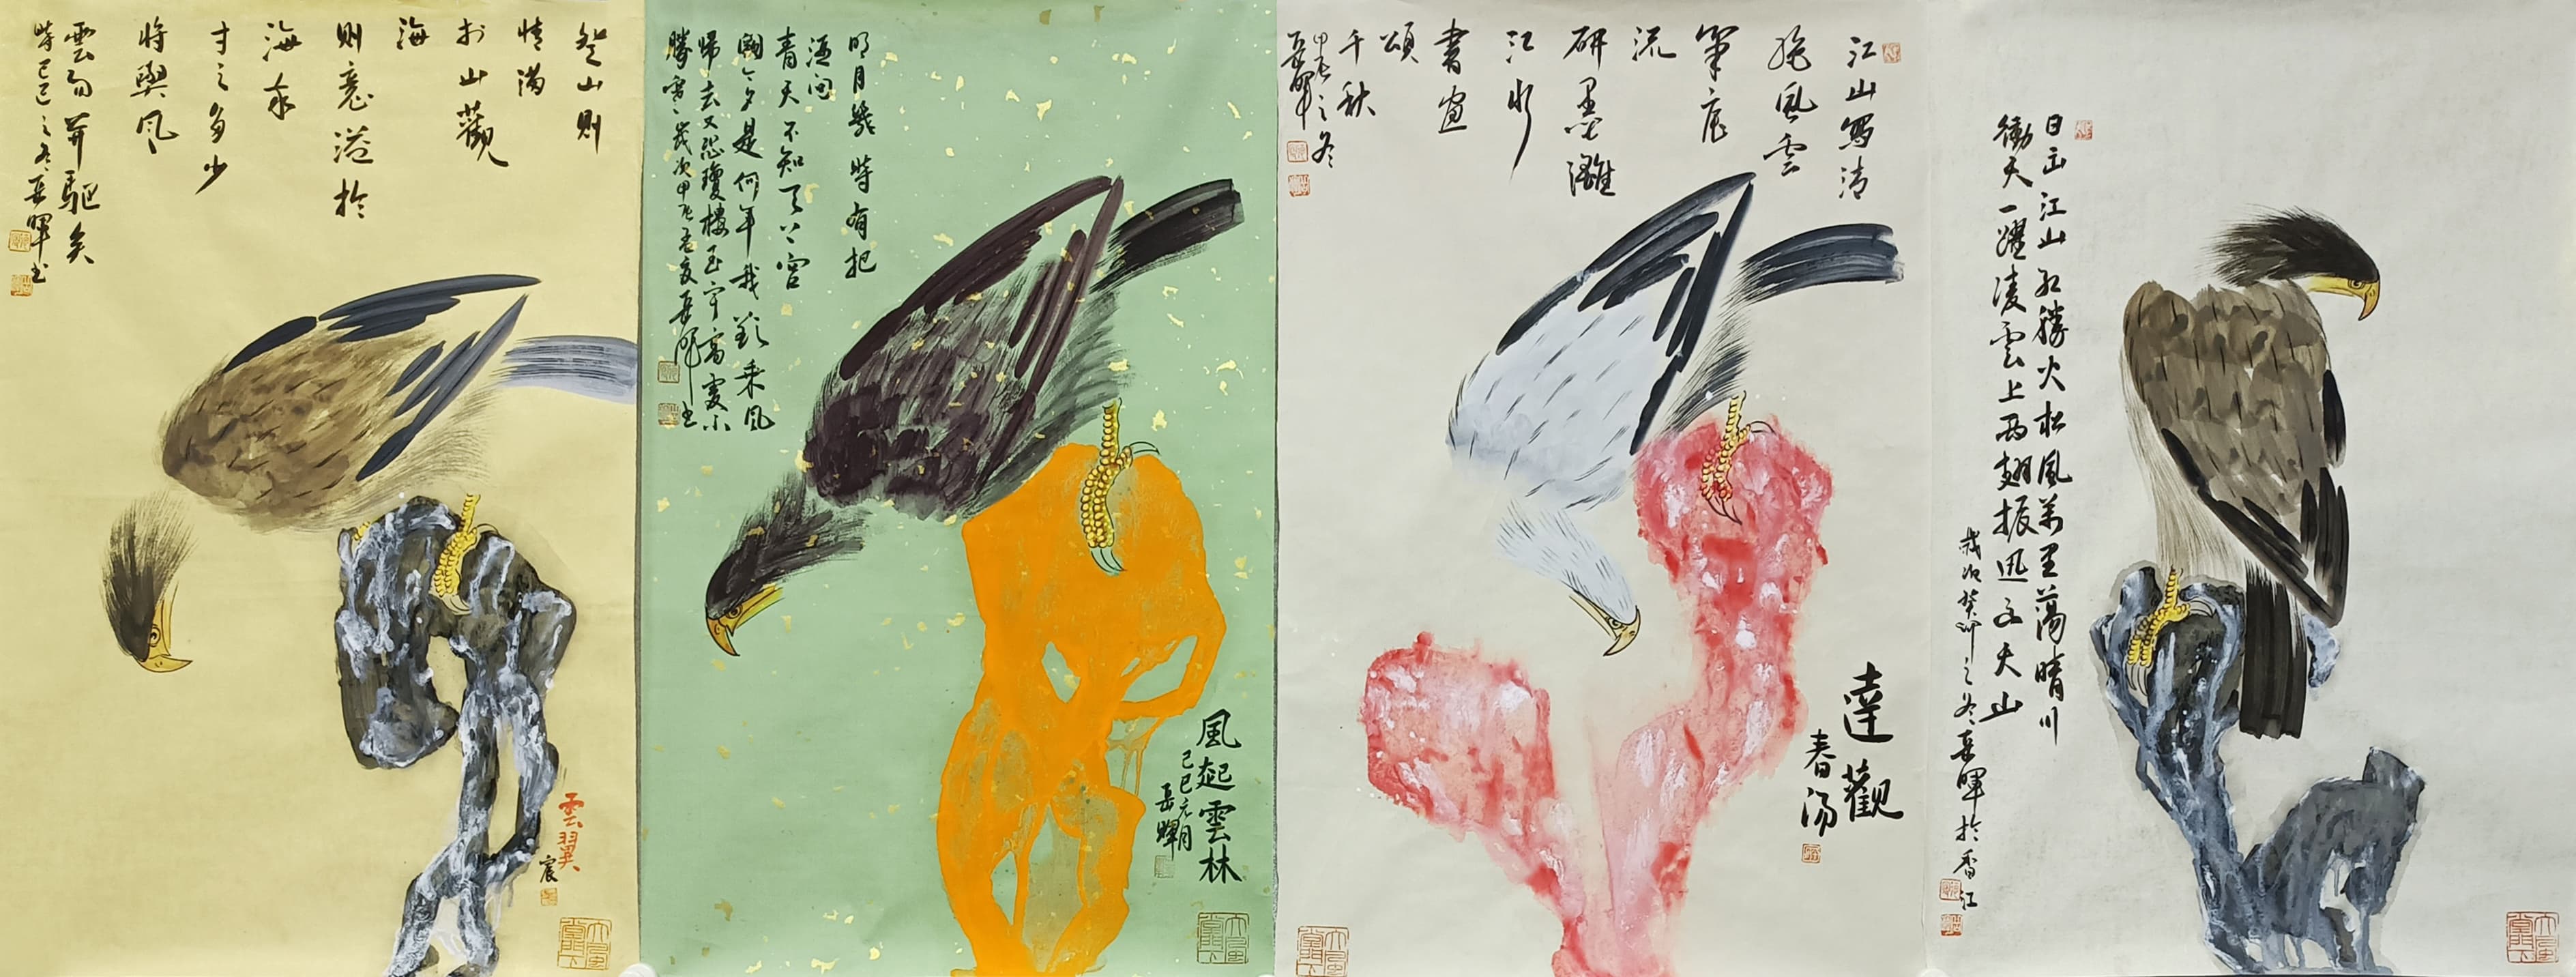 登山則
情滿
於山觀
海
則意溢於
海我
才之多少
將與風
雲而并驅矣
時己巳之冬岳暉书
雲翼
宸
明月幾時有把
酒问
青天不知天上宮
闕今夕是何年我欲乘風
歸去又恐瓊樓玉宇高處不
勝寒歲次甲辰孟夏岳暉书
風起雲林
己巳元月
岳暉
江山寫清
絶風雲
筆底
流
研墨灕
江水
書画
頌
千秋
甲辰之冬
岳暉
達觀
春汤
日出江山红勝火松風萬里蕩晴川
衝天一躍凌雲上两翅振迅立天山
歲次癸卯之冬岳暉於香江